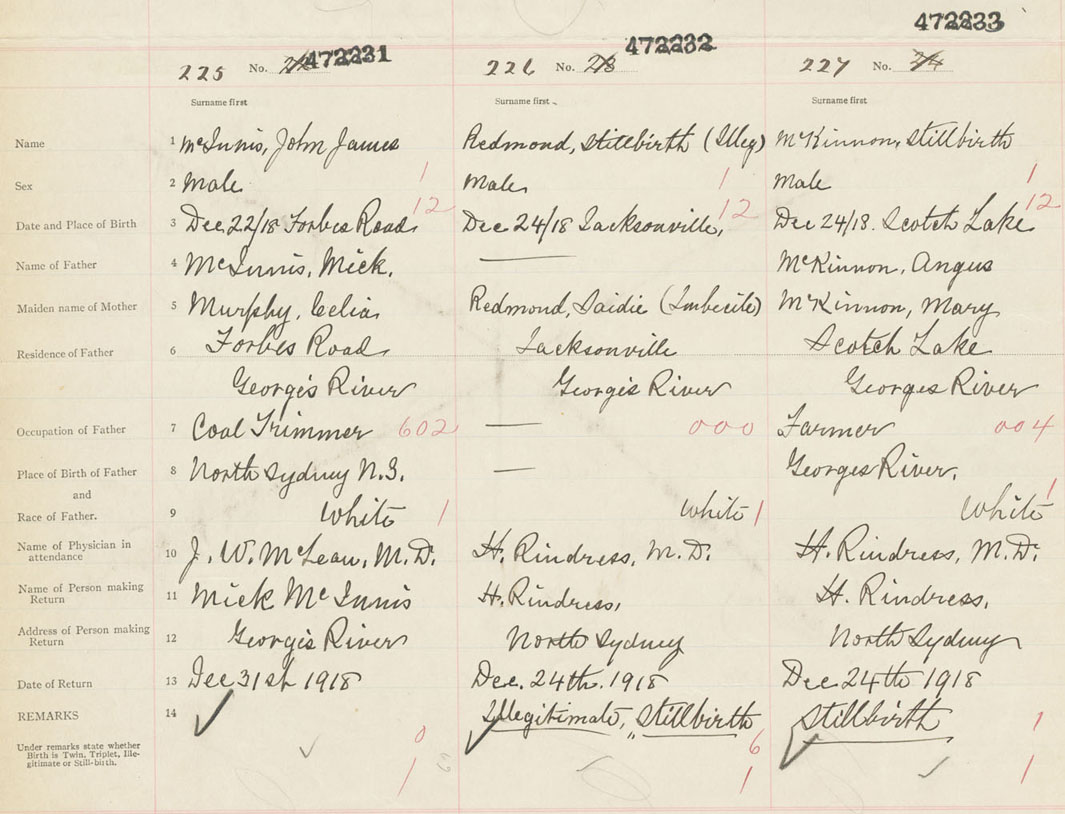 472231 472232 472233
225 No. 226 No. 23 227 No. 24
Surname first Surname first Surname first
Name 1 McInnis, John James Redmond, Stillbirth (Illeg) McKinnon, Stillbirth
Sex 2 Male 1 Male 1 Male 1
12 12 12
Date and Place of Birth 3 Dec 22/18 Forbes Road Dec 24/18 Jacksonville, Dec 24/18. Scotch Lake
Name of Father 4 McInnis, Mick. McKinnon, Angus
Maiden name of Mother 5 Murphy, Celia Redmond, Saidie (Imbecile) McKinnon, Mary
Residence of Father 6 Forbes Road Jacksonville Scotch Lake
Georges River Georges River Georges River
Occupation of Father 7 Coal Trimmer 602 000 Farmer 004
Place of Birth of Father 8 North Sydney N.S. Georges River.
and
Race of Father. 9 White 1 White 1 White 1
Name of Physician in attendance 10 J. W. McLean, M.D. H. Rindress, M.D. H. Rindress, M.D.
Name of Person making Return 11 Mick McInnis H. Rindress, H. Rindress.
Address of Person making Return 12 Georges River North Sydney North Sydney
Date of Return 13 Dec 31st 1918 Dec. 24th. 1918 Dec 24th 1918
REMARKS 14 Illegitimate, Stillbirth Stillbirth 1
Under remarks state whether Birth is Twin, Triplet, Ille-
gitimate or Still-birth.
0 6
1 1 1